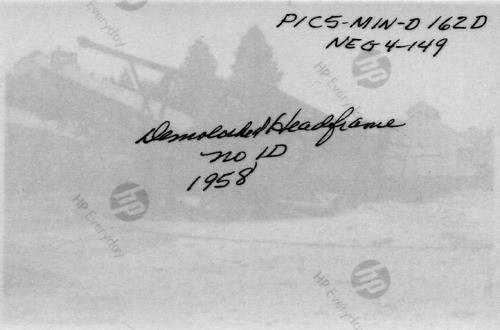 PICS-MIN-D 162D
NEG 4-149
Demoloshed Headframe
no 1D
1958
hp
HP Everyday
hp
HP Everyday
hp
HP Everyday
hp
HP Everyday